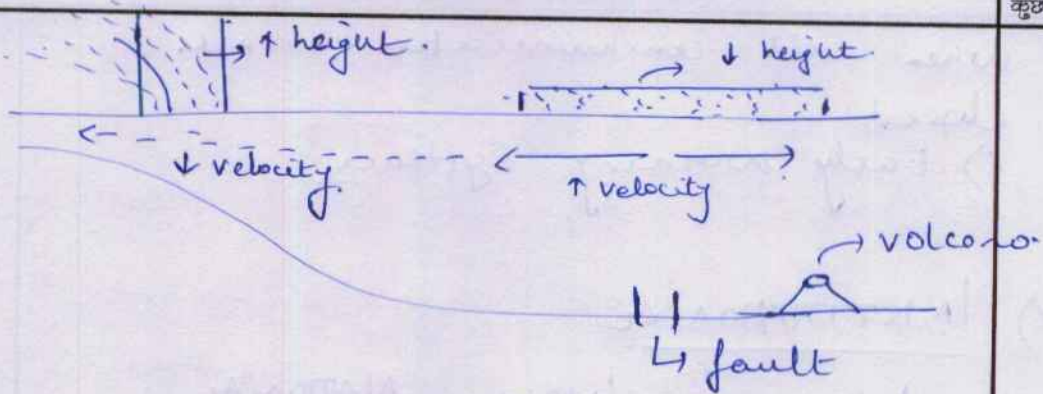 ↑ height.
↓ height
↓ velocity
↑ velocity
volcano.
fault